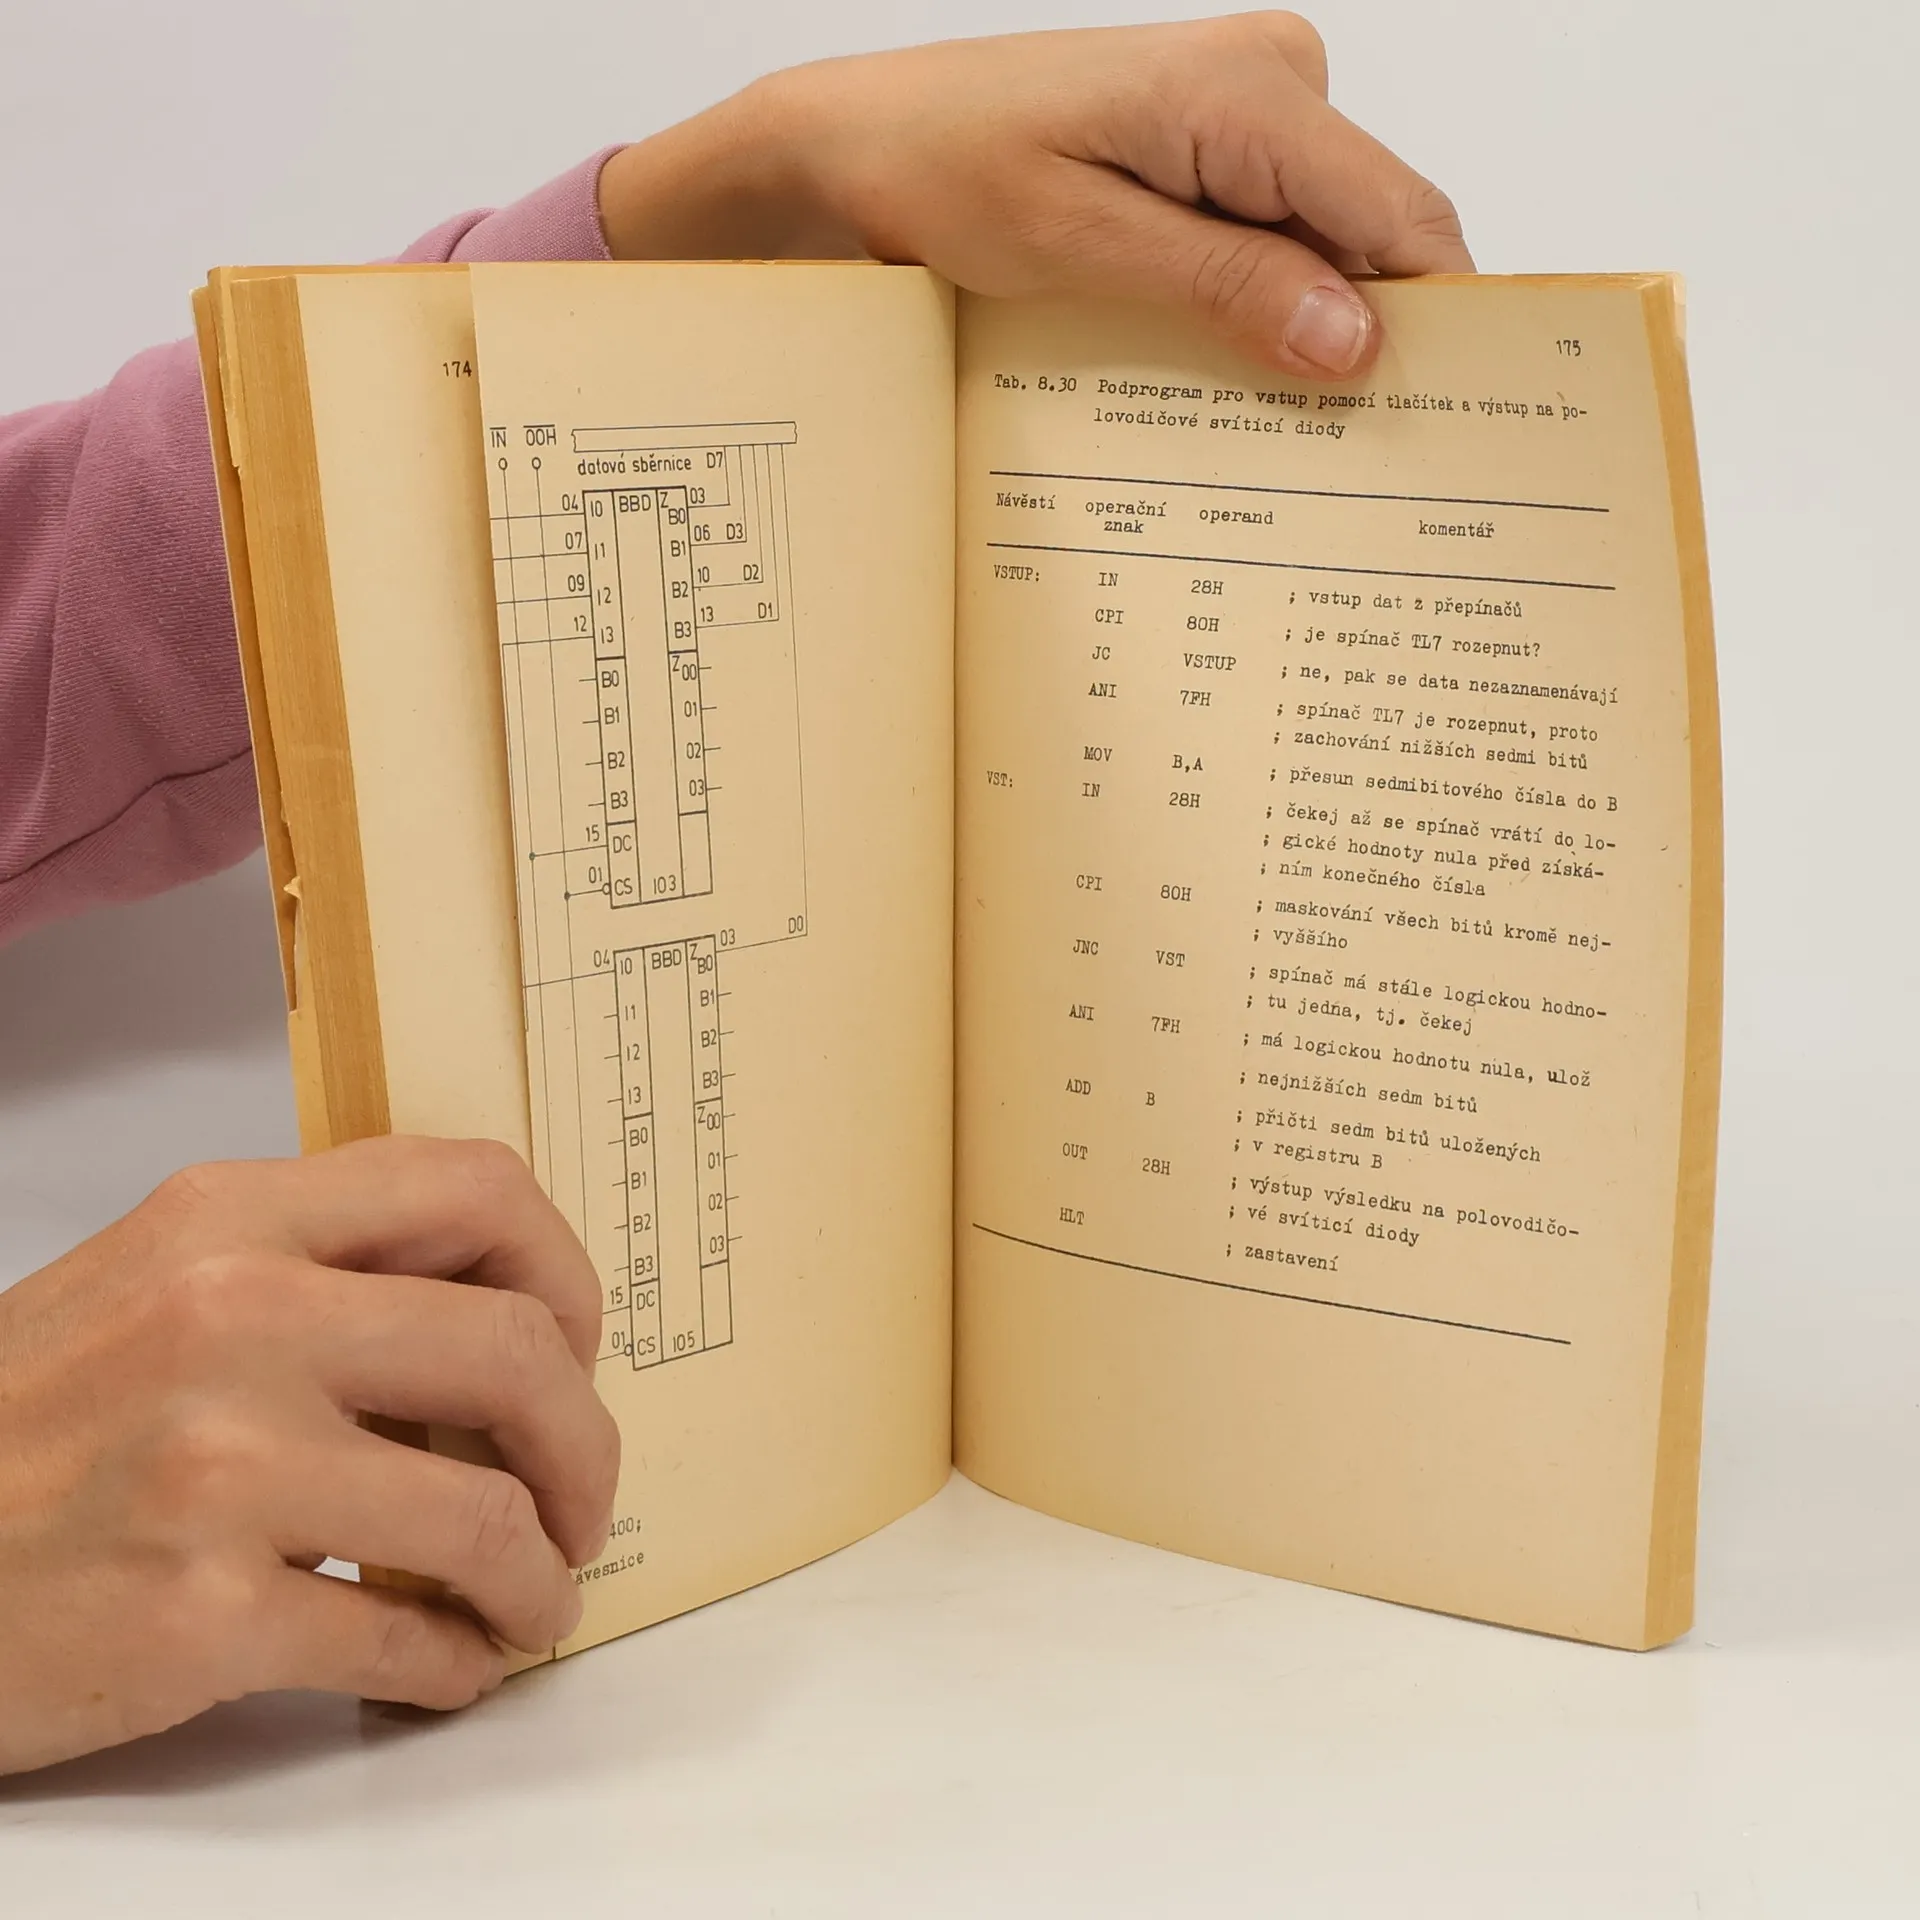 174
IN OOH
datová sběrnice D7
04 I0 BBD Z B0 03
07 I1 B1 06 D3
09 I2 B2 10 D2
12 I3 B3 13 D1
B0 Z 00
B1 01
B2 02
B3 03
15 DC
01 CS 103
D0
04 I0 BBD Z B0 03
I1 B1
I2 B2
I3 B3
B0 Z 00
B1 01
B2 02
B3 03
15 DC
01 CS 105
400;
ávesnice
175
Tab. 8.30 Podprogram pro vstup pomocí tlačítek a výstup na po-
lovodičové svíticí diody
Návěstí operační znak operand komentář
VSTUP: IN 28H ; vstup dat z přepínačů
CPI 80H ; je spínač TL7 rozepnut?
JC VSTUP ; ne, pak se data nezaznamenávají
ANI 7FH ; spínač TL7 je rozepnut, proto
; zachování nižších sedmi bitů
MOV B,A ; přesun sedmibitového čísla do B
VST: IN 28H ; čekej až se spínač vrátí do lo-
; gické hodnoty nula před získá-
; ním konečného čísla
CPI 80H ; maskování všech bitů kromě nej-
; vyššího
JNC VST ; spínač má stále logickou hodno-
; tu jedna, tj. čekej
ANI 7FH ; má logickou hodnotu nula, ulož
; nejnižších sedm bitů
ADD B ; přičti sedm bitů uložených
; v registru B
OUT 28H ; výstup výsledku na polovodičo-
; vé svíticí diody
HLT ; zastavení